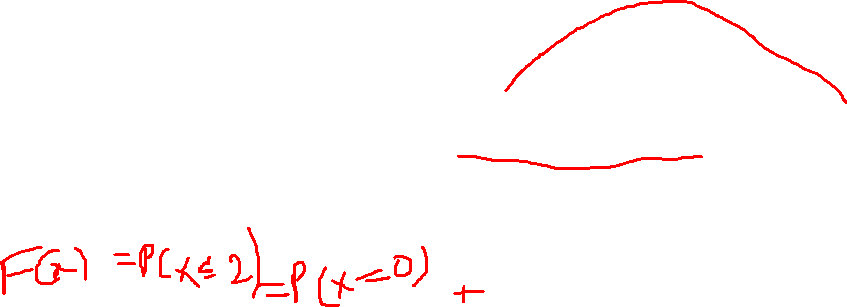 F(x) = P(X ≤ 2) = P(X = 0) +